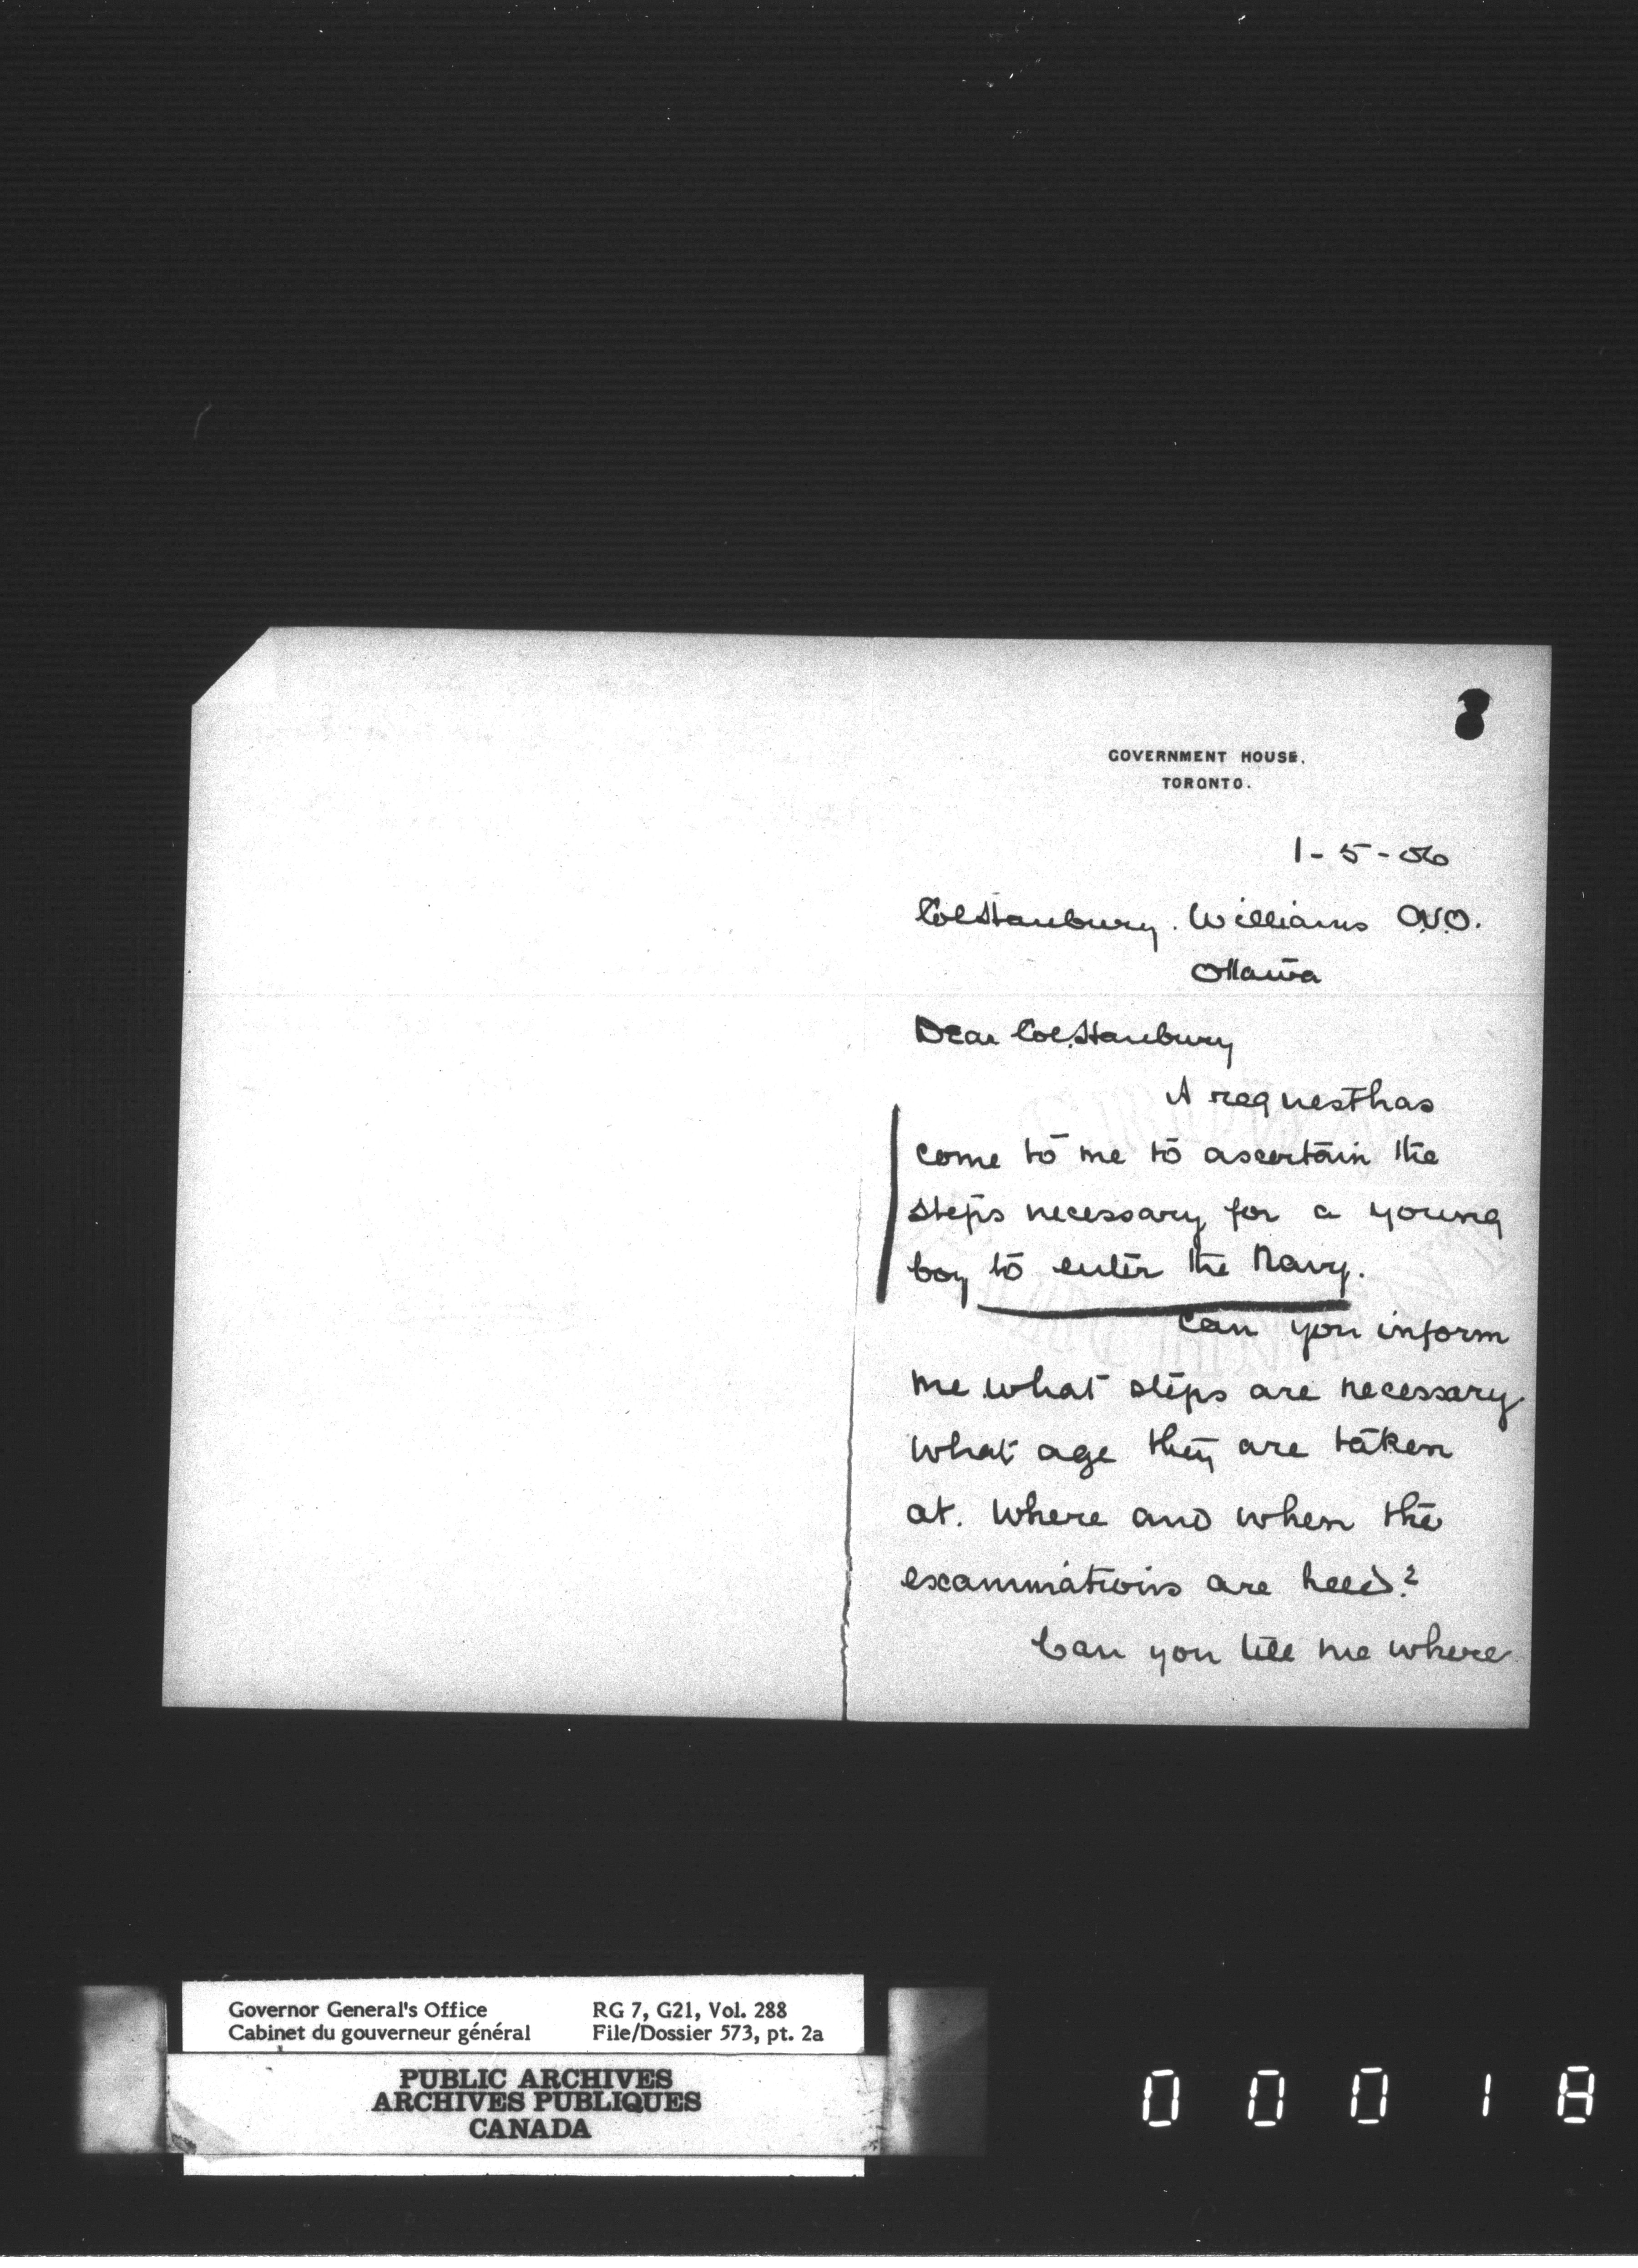 8
GOVERNMENT HOUSE.
TORONTO.
1-5-06
Col Hanbury. Williams C.V.O.
Ottawa
Dear Col. Hanbury
A request has
come to me to ascertain the
steps necessary for a young
boy to enter the Navy.
Can you inform
me what steps are necessary
what age they are taken
at. Where and when the
examinations are held?
Can you tell me where
Governor General's Office RG 7, G21, Vol. 288
Cabinet du gouverneur général File/Dossier 573, pt. 2a
PUBLIC ARCHIVES
ARCHIVES PUBLIQUES
CANADA
00018